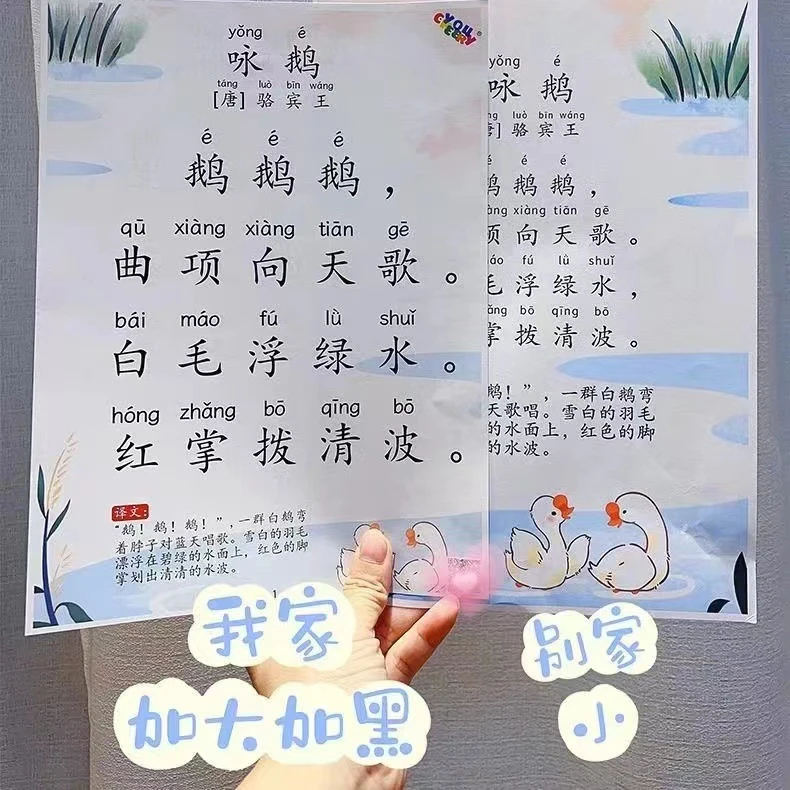 YOU CHEERY
yǒng é
咏 鹅
táng luò bīn wáng
[唐] 骆 宾 王
é é é
鹅 鹅 鹅，
qū xiàng xiàng tiān gē
曲 项 向 天 歌。
bái máo fú lǜ shuǐ
白 毛 浮 绿 水。
hóng zhǎng bō qīng bō
红 掌 拨 清 波。
译文：
“鹅！鹅！鹅！”，一群白鹅弯
着脖子对蓝天唱歌。雪白的羽毛
漂浮在碧绿的水面上，红色的脚
掌划出清清的水波。
1
yǒng é
咏 鹅
luò bīn wáng
] 骆 宾 王
é é é
鹅 鹅 鹅，
xiàng tiān gē
项 向 天 歌。
máo fú lǜ shuǐ
毛 浮 绿 水，
bō qīng bō
掌 拨 清 波。
鹅！”，一群白鹅弯
天歌唱。雪白的羽毛
的水面上，红色的脚
的水波。
我家
加大加黑
别家
小